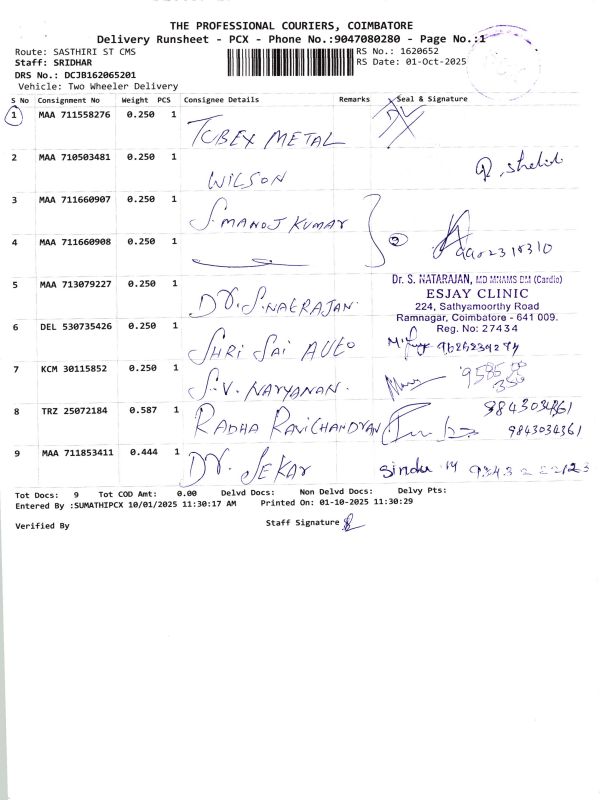 THE PROFESSIONAL COURIERS, COIMBATORE
Delivery Runsheet - PCX - Phone No.:9047080280 - Page No.:1
Route: SASTHIRI ST CMS RS No.: 1620652
Staff: SRIDHAR RS Date: 01-Oct-2025
DRS No.: DCJB162065201
Vehicle: Two Wheeler Delivery
S No Consignment No Weight PCS Consignee Details Remarks Seal & Signature
1 MAA 711558276 0.250 1 TUBEX METAL
2 MAA 710503481 0.250 1 WILSON
3 MAA 711660907 0.250 1 S. MANOJ KUMAR
4 MAA 711660908 0.250 1 2
5 MAA 713079227 0.250 1 DR. S. NAERAJAN.
Dr. S. NATARAJAN, MD MNAMS DM (Cardio)
ESJAY CLINIC
224, Sathyamoorthy Road
Ramnagar, Coimbatore - 641 009.
Reg. No: 27434
6 DEL 530735426 0.250 1 SHRI SAI AUTO
7 KCM 30115852 0.250 1 S.V. NARYANAN.
8 TRZ 25072184 0.587 1 RADHA RAVICHANDRAN 9843034361
9843034361
9 MAA 711853411 0.444 1 DR. SEKAR Sindu
Tot Docs: 9 Tot COD Amt: 0.00 Delvd Docs: Non Delvd Docs: Delvy Pts:
Entered By :SUMATHIPCX 10/01/2025 11:30:17 AM Printed On: 01-10-2025 11:30:29
Verified By Staff Signature